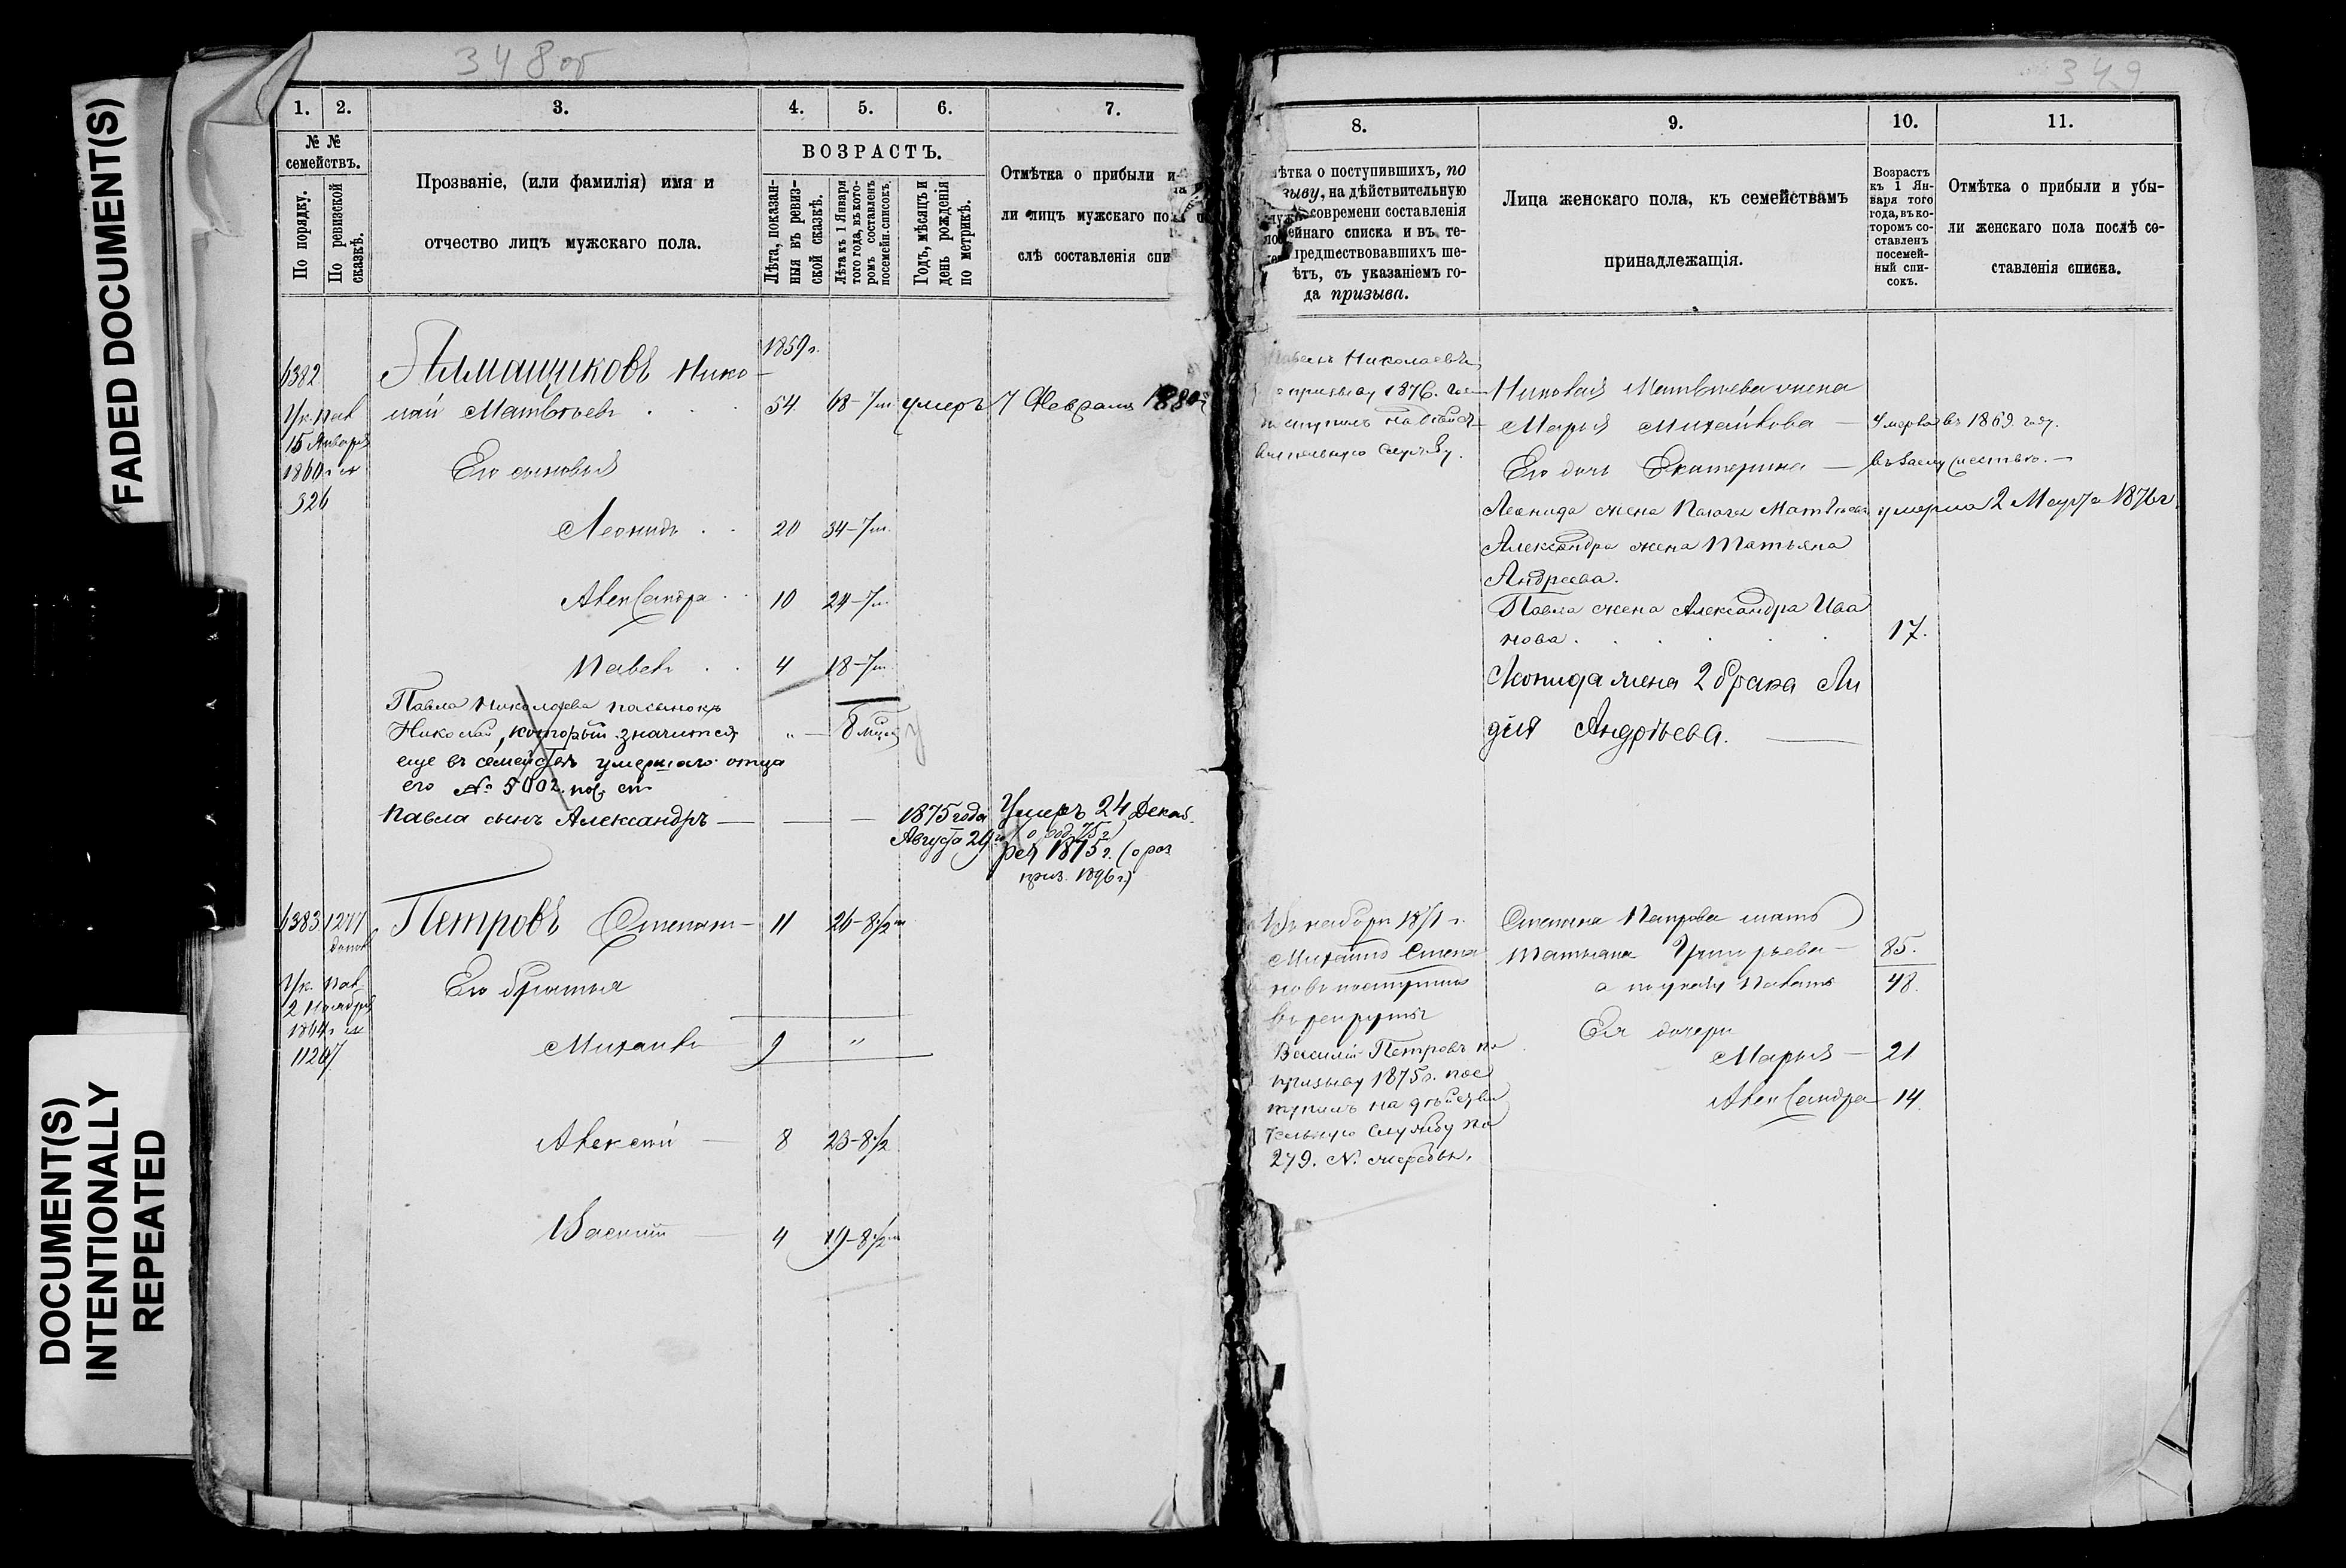 FADED DOCUMENT(S)
DOCUMENT(S)
INTENTIONALLY
REPEATED
348 об
1. 2. 3. 4. 5. 6. 7.
№ №
семействъ.
По порядку.
По ревизской
сказкѣ.
Прозваніе, (или фамилія) имя и
отчество лицъ мужскаго пола.
ВОЗРАСТЪ.
Лѣта, показан-
ныя въ ревиз-
ской сказкѣ.
Лѣта къ 1 Января
того года, въ кото-
ромъ составленъ
посемейн. списокъ.
Годъ, мѣсяцъ и
день рожденія
по метрикѣ.
Отмѣтка о прибыли и
ли лицъ мужскаго по
слѣ составленія спи
1859 г.
6382 Алмащиковъ Нико-
лай Матвѣевъ . . . 54 68-7м. умеръ 7 Февраля 1880 г.
Ук. Пал
15 Января
1860 г. №
326
Его сыновья
Леонидъ . . 20 34-7м.
Александра . . 10 24-7м.
Павелъ . . 4 18-7м.
Павла Николаева пасынокъ
Николай, который значится " — 8 мцы
еще въ семействѣ умершаго отца
его № 5002.
Павла сынъ Александръ — — — 1875 года
Августа 29го
Умеръ 24 Декаб.
ря 1875 г. (о роз
приз. 1896 г.)
6383 1277 Петровъ Степанъ — 11 26-8½м
допол
Ук. Пал
2 Ноября
1864 г. №
11207
Его братья
Михаилъ 9 "
Алексѣй — 8 23-8½
Василій — 4 19-8½м
349
8. 9. 10. 11.
ѣтка о поступившихъ, по
зыву, на дѣйствительную
современи составленія
ейнаго списка и въ те-
предшествовавшихъ ше-
ѣтъ, съ указаніемъ го-
да призыва.
Лица женскаго пола, къ семействамъ
принадлежащія.
Возрастъ
къ 1 Ян-
варя того
года, въ ко-
торомъ со-
ставленъ
посемей-
ный спи-
сокъ.
Отмѣтка о прибыли и убы-
ли женскаго пола послѣ со-
ставленія списка.
Павелъ Николаевъ
призыву 1876. года
поступилъ на дѣйст-
вительную службу.
Николая Матвѣева жена
Марья Михайлова — Умерла въ 1869. году.
Его дочь Екатерина — въ замужествѣ. —
Леонида жена Пелагея Матвѣева умерла 2 Марта 1876 г.
Александра жена Татьяна
Андреева.
Павла жена Александра Ива
нова . . . . 17.
Леонида жена 2 брака Ли
дія Андрѣева. —
Въ наборъ 1871 г.
Михаило Степа
новъ поступилъ
въ рекруты
Василій Петровъ по
призыву 1875 г. пос
тупилъ на дѣйстви
тельную службу по
279. №. жеребья.
Степана Петрова мать
Татьяна Григорьева — 85.
а по указу Палаты 48.
Ея дочери
Марья — 21
Александра — 14